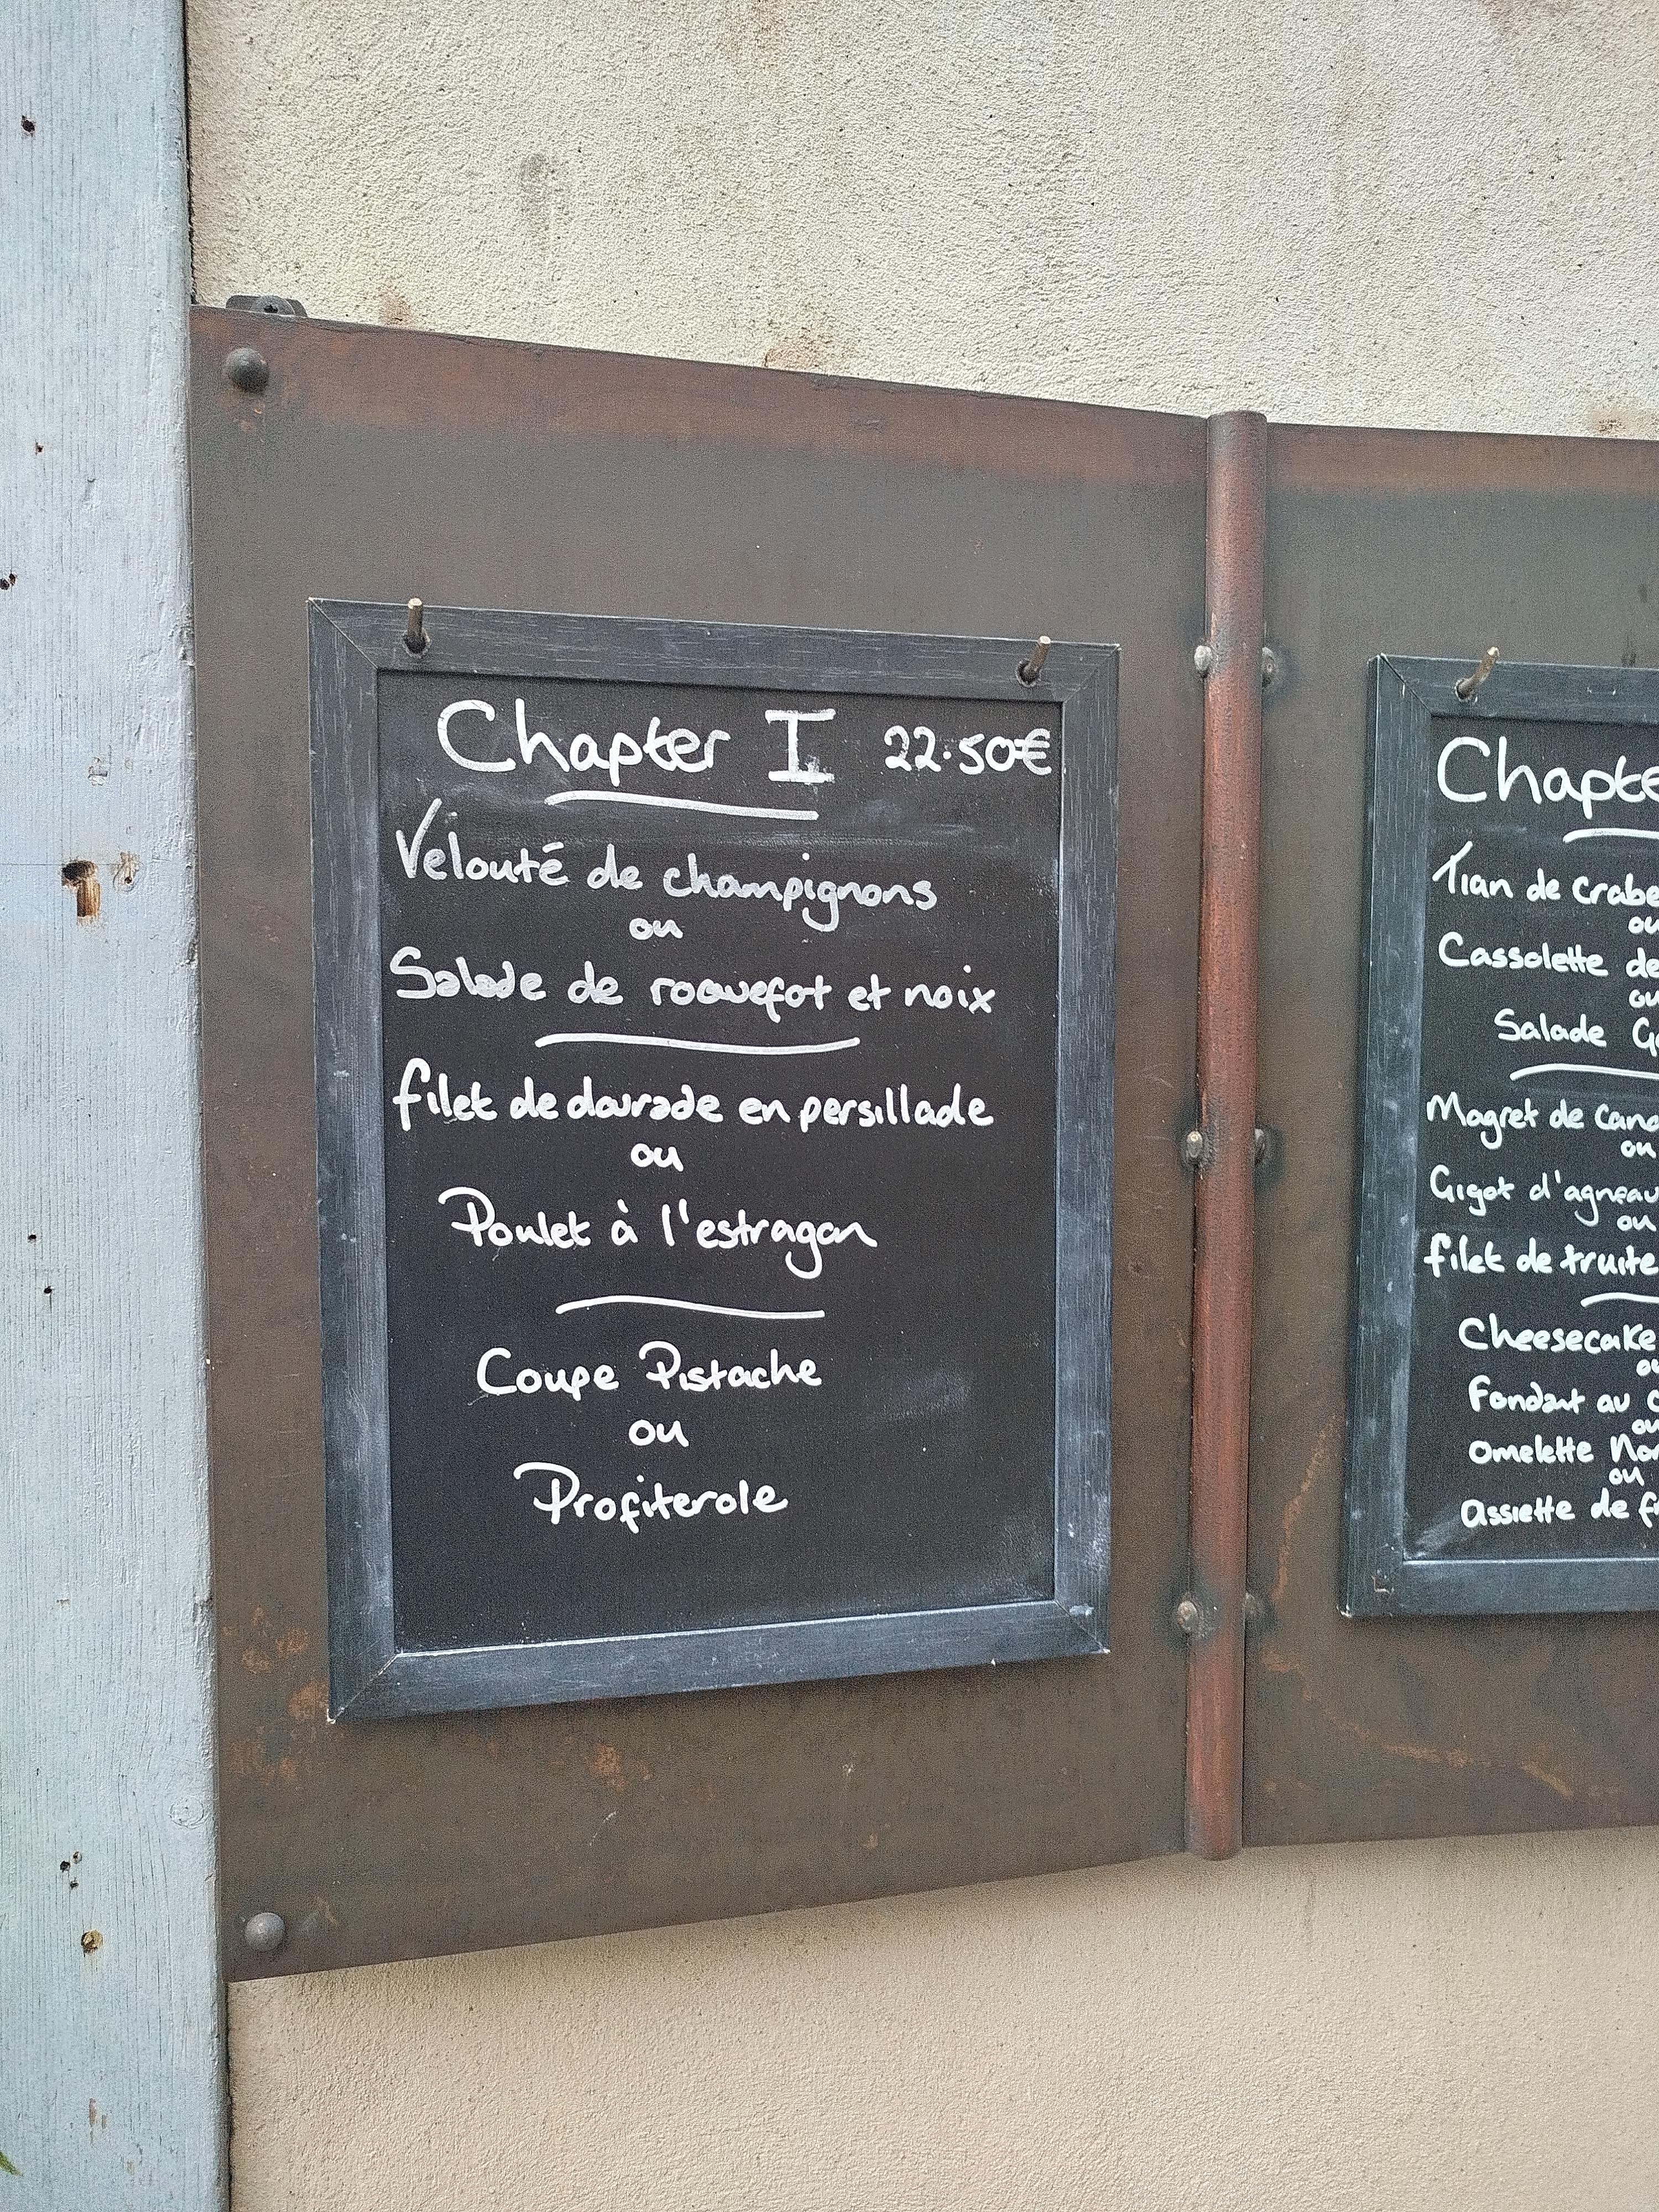 Chapter I 22.50€
Velouté de champignons
ou
Salade de roquefot et noix
filet de daurade en persillade
ou
Poulet à l'estragon
Coupe Pistache
ou
Profiterole
Chapte
Tian de Crabe
ou
Cassolette de
ou
Salade G
Magret de Cana
ou
Gigot d'agneau
ou
filet de truite
Cheesecake
ou
Fondant au c
ou
Omelette Nor
ou
assiette de f